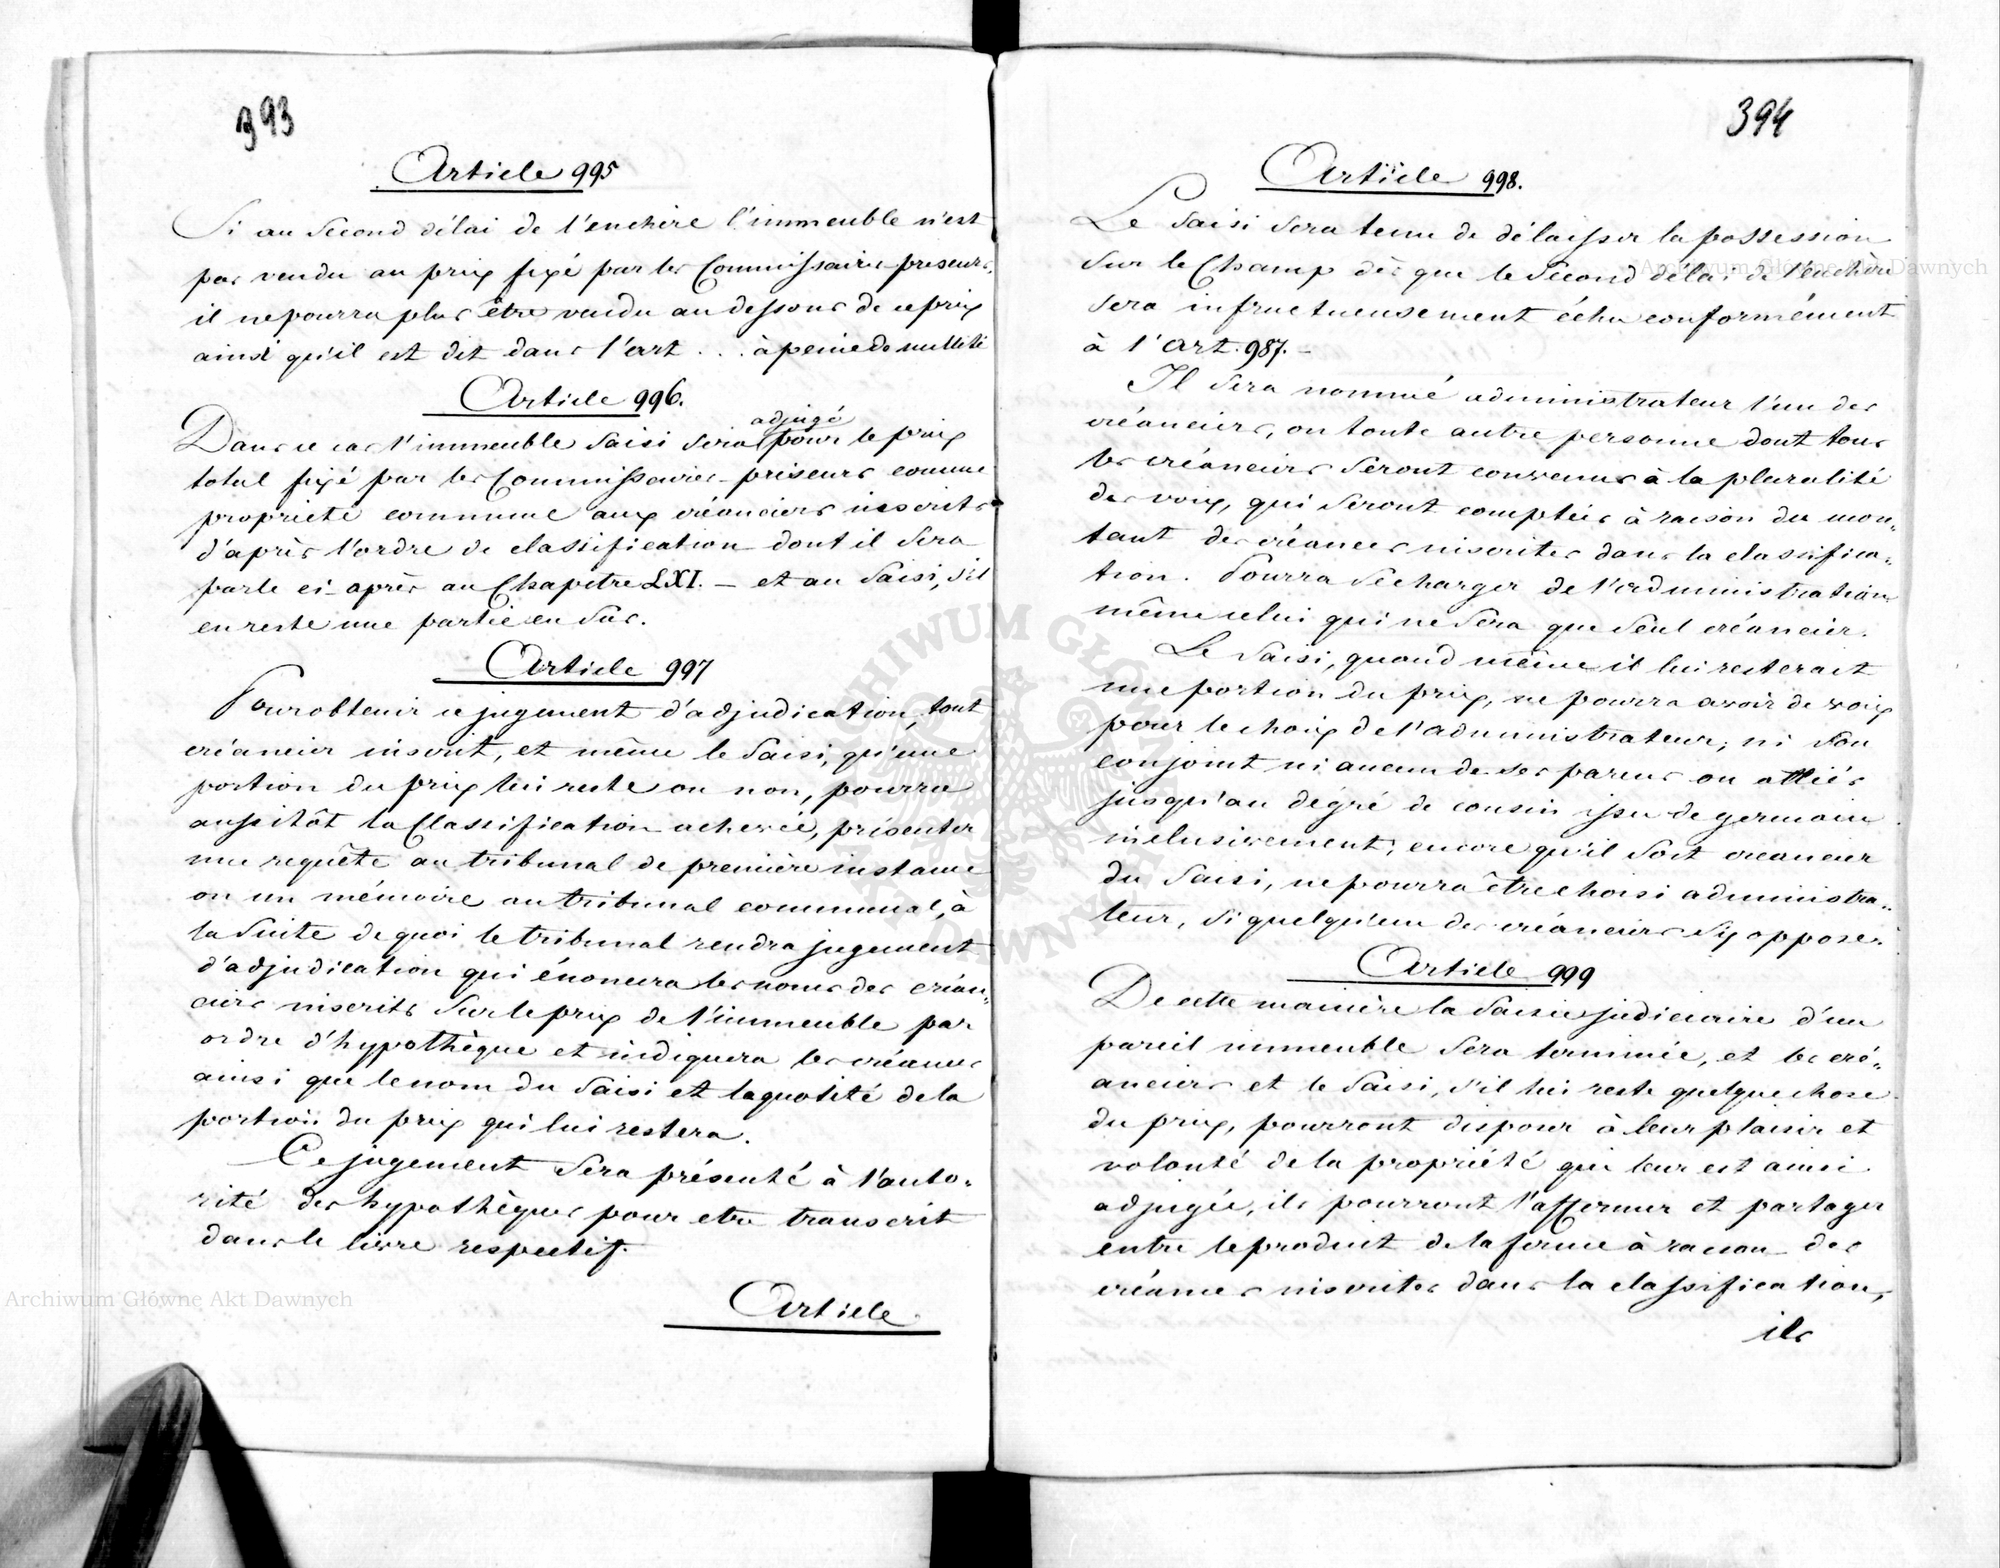 393
Article 995
Si au second délai de l'enchère l'immeuble n'est
pas vendu au prix fixé par les Commissaires-priseurs,
il ne pourra plus être vendu au dessous de ce prix
ainsi qu'il est dit dans l'art . . . à peine de nullité
Article 996.
adjugé
Dans ce cas l'immeuble saisi sera pour le prix
total fixé par les Commissaires-priseurs comme
propriété commune aux créanciers inscrits
d'après l'ordre de classification dont il sera
parlé ci-après au Chapitre LXI. — et au saisi, s'il
en reste une partie en sus.
Article 997
Pour obtenir ce jugement d'adjudication, tout
créancier inscrit, et même le saisi, qu'une
portion du prix lui reste ou non, pourra
aussitôt la Classification achevée, présenter
une requête au tribunal de première instance
ou un mémoire au tribunal communal, à
la suite de quoi le tribunal rendra jugement
d'adjudication qui énoncera les noms des créan„
ciers inscrits sur le prix de l'immeuble par
ordre d'hypothèque et indiquera les créances
ainsi que le nom du saisi et la quotité de la
portion du prix qui lui restera.
Ce jugement sera présenté à l'auto„
rité des hypothèques pour etre transcrit
dans le livre respectif.
Article
394
Article 998.
Le saisi sera tenu de délaisser la possession
sur le Champ dès que le second délai de l'enchère
sera infructueusement échu conformément
à l'Art. 987. —
Il sera nommé administrateur l'un des
créanciers, ou toute autre personne dont tous
les créanciers seront convenus à la pluralité
des voix, qui seront comptées à raison du mon„
tant des créances inscrites dans la classifica„
tion. Pourra se charger de l'administration
même celui qui ne sera que seul créancier.
Le saisi, quand même il lui resterait
une portion du prix, ne pourra avoir de voix
pour le choix de l'administrateur, ni son
conjoint ni aucun de ses parens ou alliés
jusqu'au dégré de cousin issu de germain
inclusivement; encore qu'il soit créancier
du saisi, ne pourra être choisi administra„
teur, si quelqu'un des créanciers s'y oppose.
Article 999
De cette manière la saisie judiciaire d'un
pareil immeuble sera terminée, et les cré„
anciers et le saisi, s'il lui reste quelque chose
du prix, pourront disposer à leur plaisir et
volonté de la propriété qui leur est ainsi
adjugée, ils pourront l'affermer et partager
entre le produit de la ferme à raison des
créances inscrites dans la classification,
ils
Archiwum Główne Akt Dawnych
Archiwum Główne Akt Dawnych
ARCHIWUM GŁÓWNE AKT DAWNYCH